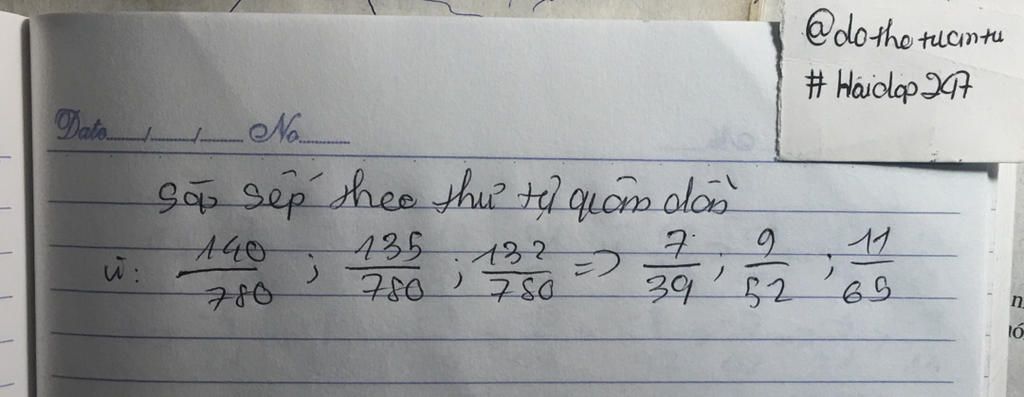 @dothotuantu
# Hoidap247
Date...../...../..... No..........
Sắp sếp theo thứ tự giảm dần
vì: 140/780 ; 135/780 ; 132/780 => 7/39 ; 9/52 ; 11/65